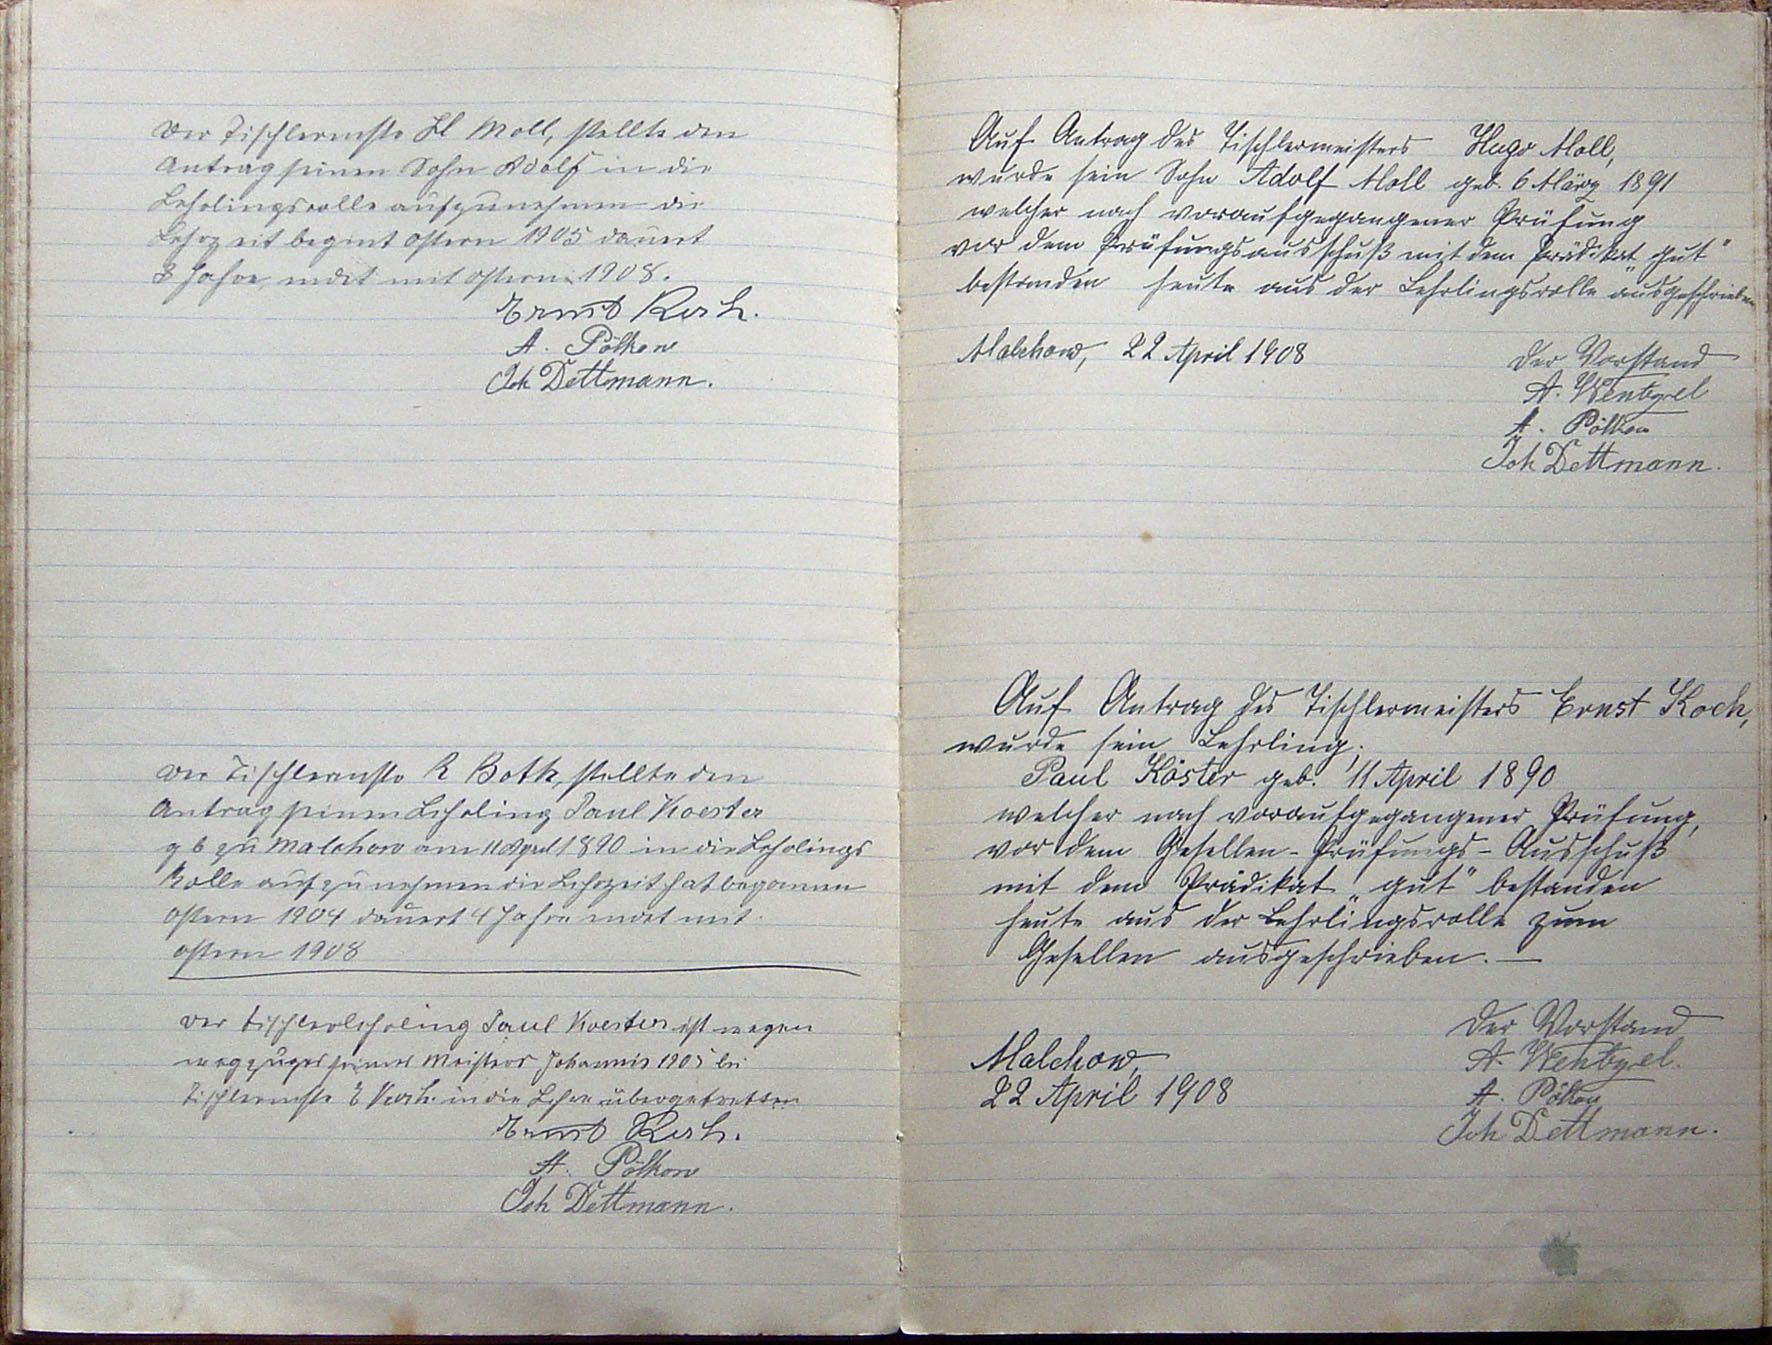 Der Tischlermstr H Moll, stellte den
Antrag seinen Sohn Adolf in die
Lehrlingsrolle aufzunehmen die
Lehrzeit begint Ostern 1905 dauert
3 Jahre, endet mit Ostern 1908.
Ernst Koch.
A. Pölkow
Joh Dettmann.
Der Tischlermstr R Both, stellte den
Antrag seinen Lehrling Paul Koester
gb zu Malchow am 11 April 1890 in die Lehrlings
Rolle aufzunehmen die Lehrzeit hat begonnen
Ostern 1904 dauert 4 Jahre endet mit
Ostern 1908
Der Tischlerlehrling Paul Koester ist wegen
wegzuges seines Meisters Johannis 1905 bei
Tischlermstr E Koch in die Lehre übergetretten
Ernst Koch.
A. Pölkow
Joh Dettmann.
Auf Antrag des Tischlermeisters Hugo Moll,
wurde sein Sohn Adolf Moll geb. 6 März 1891
welcher nach voraufgegangener Prüfung
vor dem Prüfungsausschuß mit dem Prädikat „gut"
bestanden heute aus der Lehrlingsrolle ausgeschrieben
Malchow, 22 April 1908
Der Vorstand
A. Wentzel
A. Pölkow
Joh Dettmann.
Auf Antrag des Tischlermeisters Ernst Koch,
wurde sein Lehrling,
Paul Köster geb. 11 April 1890
welcher nach voraufgegangener Prüfung,
vor dem Gesellen-Prüfungs-Ausschuß
mit dem Prädikat „gut" bestanden
heute aus der Lehrlingsrolle zum
Gesellen ausgeschrieben. —
Der Vorstand
Malchow,
22 April 1908
A. Wentzel.
A. Pölkow
Joh Dettmann.